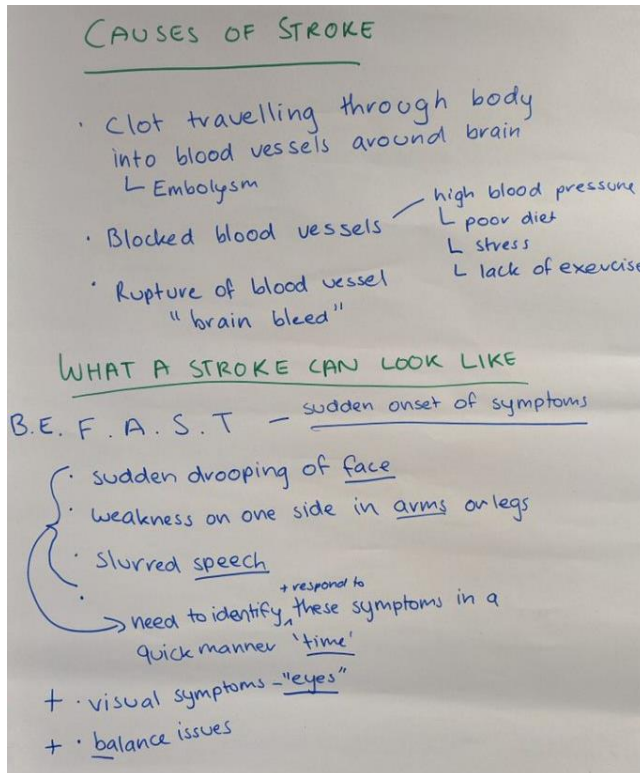 CAUSES OF STROKE
· Clot travelling through body
into blood vessels around brain
└ Embolysm
· Blocked blood vessels
high blood pressure
└ poor diet
└ stress
└ lack of exercise
· Rupture of blood vessel
"brain bleed"
WHAT A STROKE CAN LOOK LIKE
B.E. F. A. S. T – sudden onset of symptoms
· sudden drooping of face
· weakness on one side in arms or legs
· slurred speech
+ respond to
· → need to identify ^ these symptoms in a
quick manner 'time'
+ · visual symptoms - "eyes"
+ · balance issues